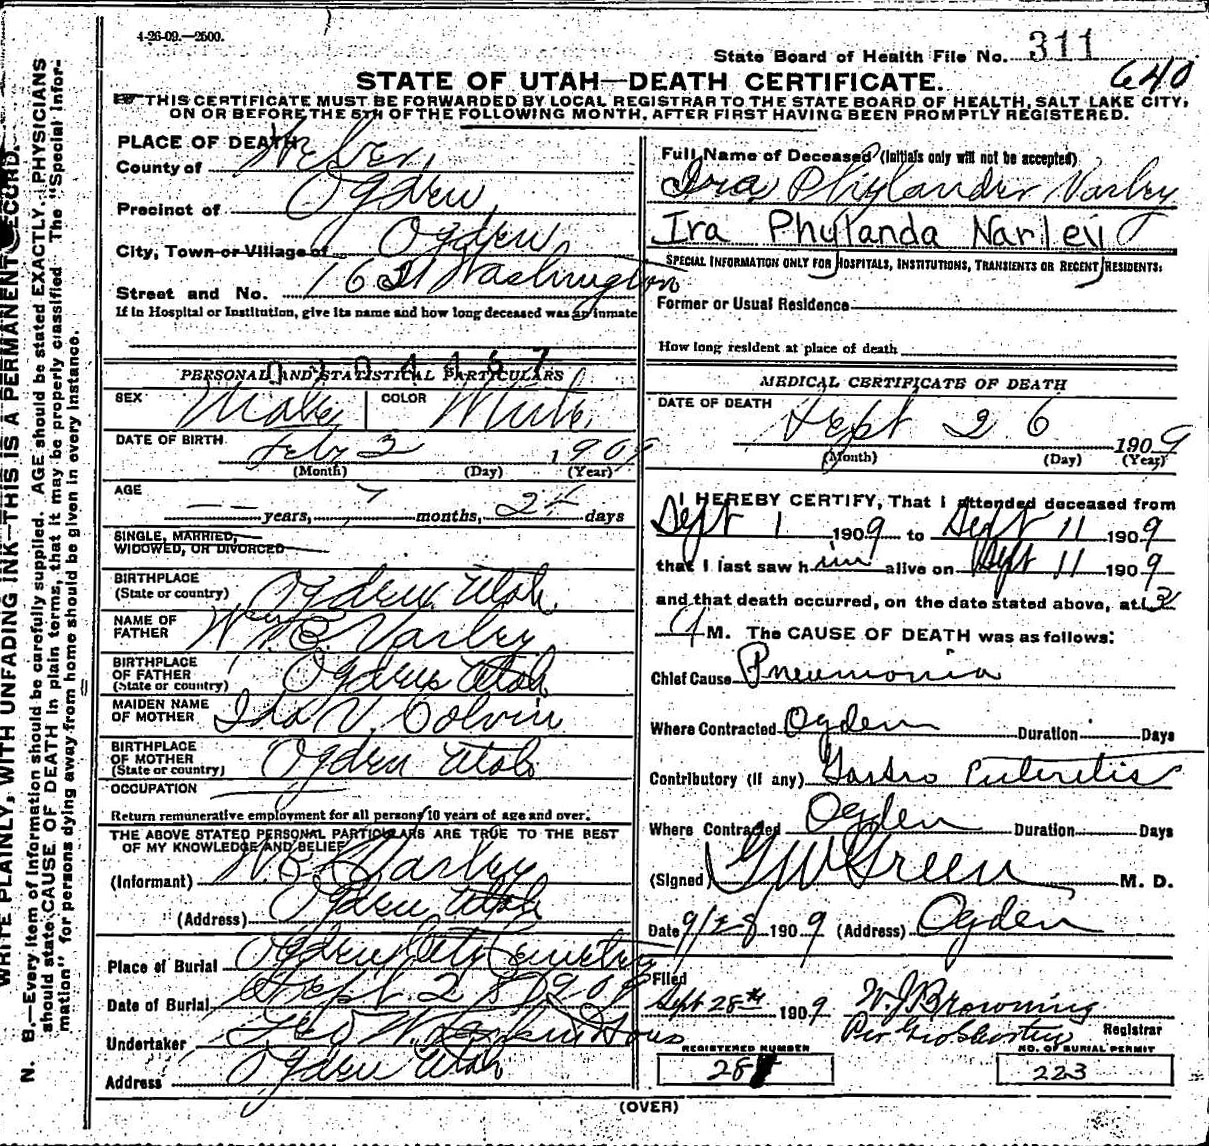 4-26-09.—2500.
State Board of Health File No. 311
640
STATE OF UTAH—DEATH CERTIFICATE.
THIS CERTIFICATE MUST BE FORWARDED BY LOCAL REGISTRAR TO THE STATE BOARD OF HEALTH, SALT LAKE CITY,
ON OR BEFORE THE 5TH OF THE FOLLOWING MONTH, AFTER FIRST HAVING BEEN PROMPTLY REGISTERED.
WRITE PLAINLY, WITH UNFADING INK—THIS IS A PERMANENT RECORD.
N. B.—Every item of information should be carefully supplied. AGE should be stated EXACTLY. PHYSICIANS
should state CAUSE OF DEATH in plain terms, that it may be properly classified. The "Special Infor-
mation" for persons dying away from home should be given in every instance.
PLACE OF DEATH
County of Weber
Precinct of Ogden
City, Town or Village of Ogden
Street and No. Washington
If in Hospital or Institution, give its name and how long deceased was an inmate
PERSONAL AND STATISTICAL PARTICULARS
SEX Male COLOR White
DATE OF BIRTH Feb 2 1909
(Month) (Day) (Year)
AGE
— — years, 7 months, 24 days
SINGLE, MARRIED,
WIDOWED, OR DIVORCED
BIRTHPLACE
(State or country) Ogden Utah
NAME OF
FATHER Wm B. Varley
BIRTHPLACE
OF FATHER
(State or country) Ogden Utah
MAIDEN NAME
OF MOTHER Ida V. Colvin
BIRTHPLACE
OF MOTHER
(State or country) Ogden Utah
OCCUPATION
Return remunerative employment for all persons 10 years of age and over.
THE ABOVE STATED PERSONAL PARTICULARS ARE TRUE TO THE BEST
OF MY KNOWLEDGE AND BELIEF
(Informant) W. B. Varley
(Address) Ogden Utah
Place of Burial Ogden City Cemetery
Date of Burial Sept 28 1909
Undertaker
Address Ogden Utah
Full Name of Deceased (Initials only will not be accepted)
Ira Phylander Varley
Ira Phylanda Narley
SPECIAL INFORMATION ONLY FOR HOSPITALS, INSTITUTIONS, TRANSIENTS OR RECENT RESIDENTS:
Former or Usual Residence
How long resident at place of death
MEDICAL CERTIFICATE OF DEATH
DATE OF DEATH
Sept 26 1909
(Month) (Day) (Year)
I HEREBY CERTIFY, That I attended deceased from
Sept 1 1909 to Sept 11 1909
that I last saw him alive on Sept 11 1909
and that death occurred, on the date stated above, at
M. The CAUSE OF DEATH was as follows:
Chief Cause Pneumonia
Where Contracted Ogden Duration Days
Contributory (if any) Gastro Enteritis
Where Contracted Ogden Duration Days
(Signed) GW Green M. D.
Date 9/28 1909 (Address) Ogden
Filed
Sept 28th 1909 W. J Browning
Per Registrar
REGISTERED NUMBER
28
NO. OF BURIAL PERMIT
223
(OVER)